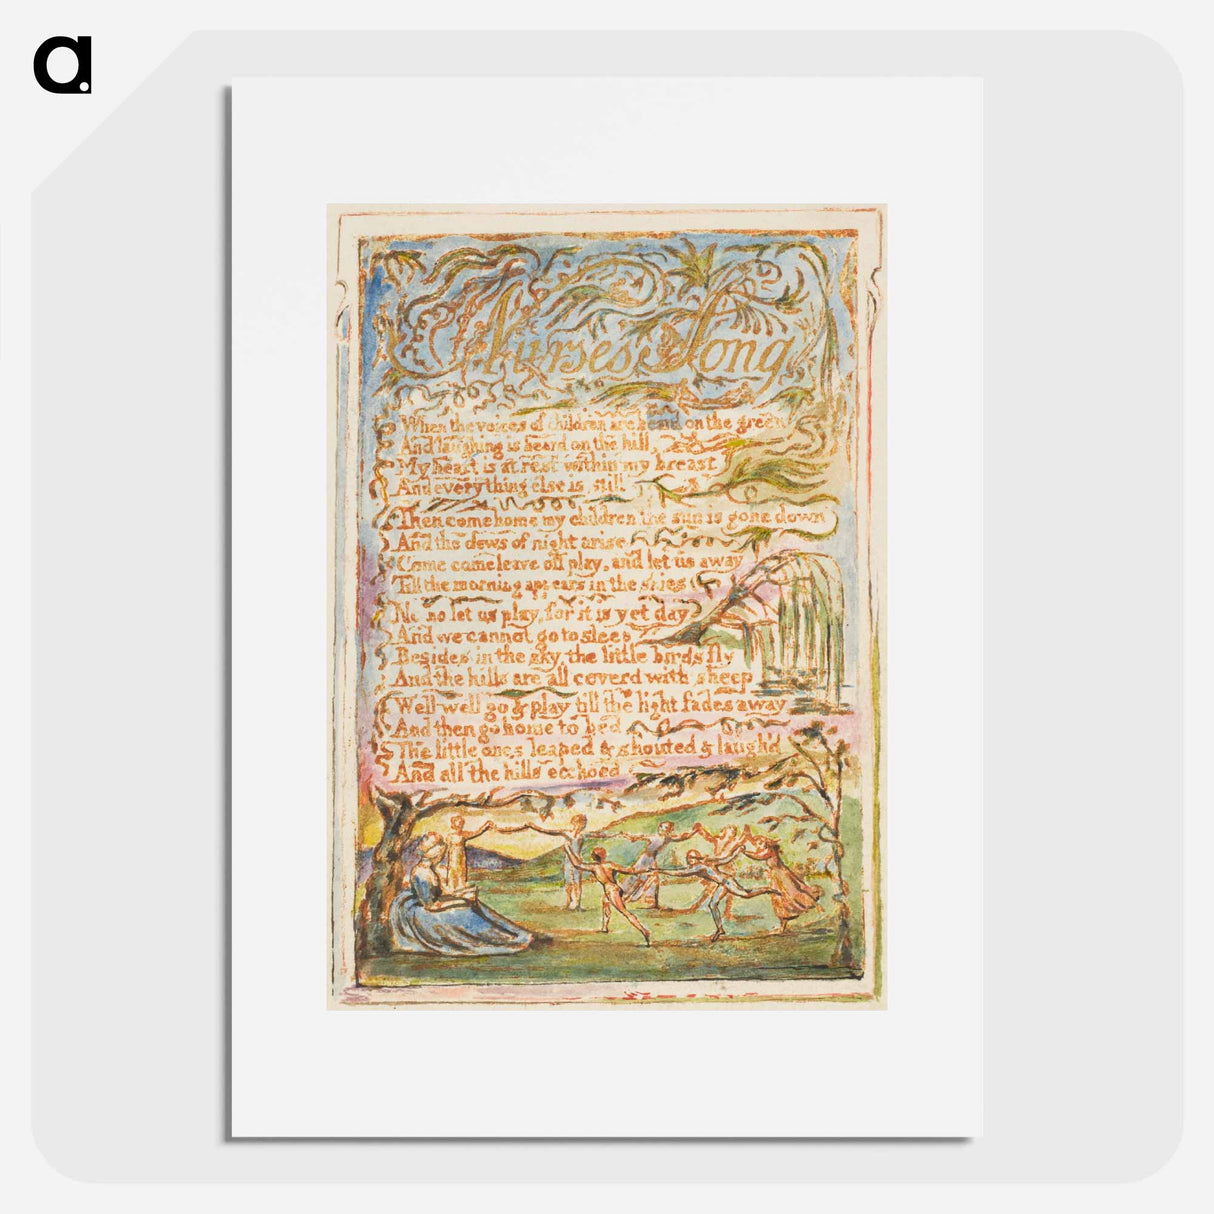 a.
Nurses Song
When the voices of children are heard on the green
And laughing is heard on the hill,
My heart is at rest within my breast
And every thing else is still
Then come home my children, the sun is gone down
And the dews of night arise
Come come leave off play, and let us away
Till the morning appears in the skies
No no let us play, for it is yet day
And we cannot go to sleep
Besides in the sky, the little birds fly
And the hills are all coverd with sheep
Well well go & play till the light fades away
And then go home to bed
The little ones leaped & shouted & laugh'd
And all the hills ecchoed